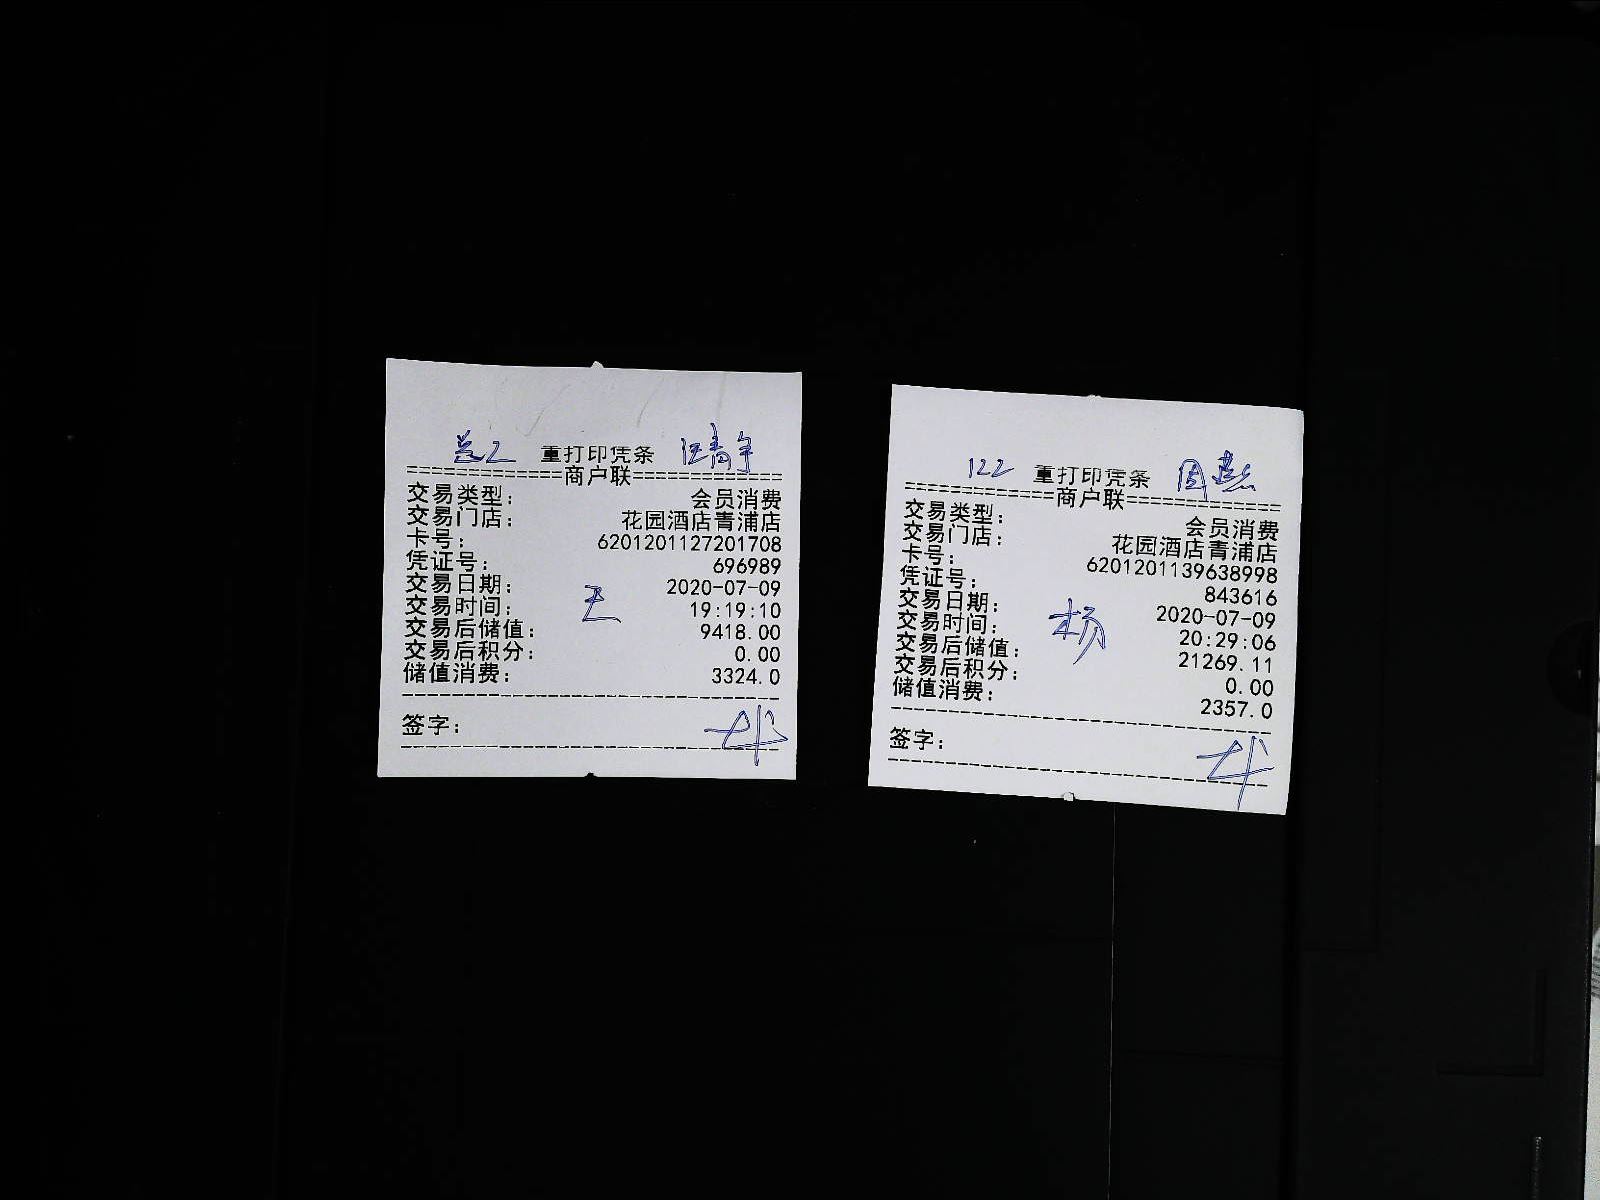 重打印凭条 汪青宇
==========商户联==========
交易类型： 会员消费
交易门店： 花园酒店青浦店
卡号： 6201201127201708
凭证号： 696989
交易日期： 2020-07-09
交易时间： 19:19:10
王
交易后储值： 9418.00
交易后积分： 0.00
储值消费： 3324.0
签字：
122 重打印凭条 周燕
==========商户联==========
交易类型： 会员消费
交易门店： 花园酒店青浦店
卡号： 6201201139638998
凭证号： 843616
交易日期： 2020-07-09
交易时间： 20:29:06
杨
交易后储值： 21269.11
交易后积分： 0.00
储值消费： 2357.0
签字：